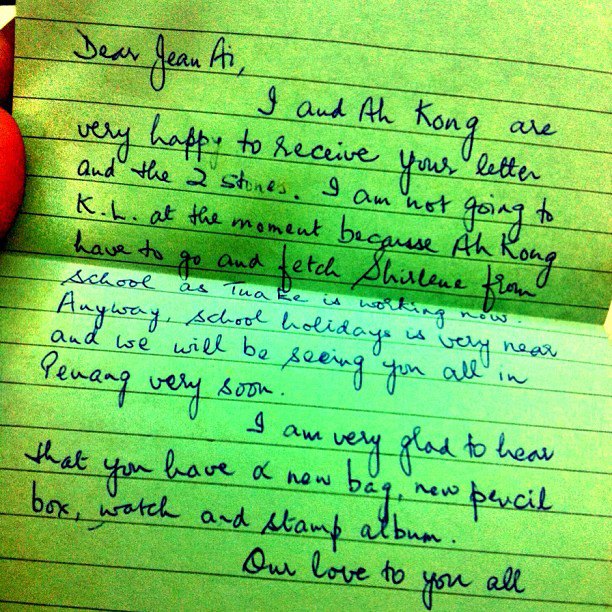 Dear Jean Ai,
I and Ah Kong are
very happy to receive your letter
and the 2 stones. I am not going to
K.L. at the moment because Ah Kong
have to go and fetch Shirlene from
school as Tua Ke is working now.
Anyway, school holidays is very near
and we will be seeing you all in
Penang very soon.
I am very glad to hear
that you have a new bag, new pencil
box, watch and stamp album.
Our love to you all